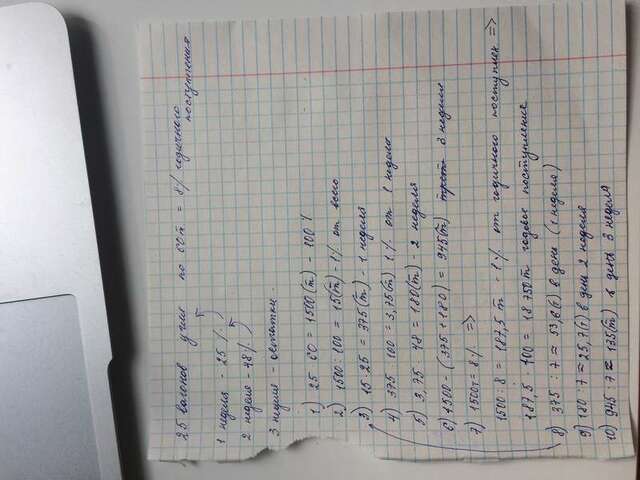 25 вагонов угля по 60т = 8% годичного
поступления
1 неделя - 25 %
2 неделя - 48%
3 неделя - остатки.
1) 25 · 60 = 1500(т) - 100%
2) 1500 : 100 = 15(т) - 1% от всего
3) 15 · 25 = 375(т) - 1 неделя
4) 375 : 100 = 3,75(т) 1% от 1 недела
5) 3,75 · 48 = 180(т) - 2 неделя
6) 1500 - (375 + 180) = 945(т) 3 неделя
7) 1500т = 8% =>
1500 : 8 = 187,5 т - 1% от годичного поступлен =>
187,5 · 100 = 18 750т годовое поступление
8) 375 : 7 ≈ 53,6(т) в день (1 неделя)
9) 180 : 7 ≈ 25,7(т) в день 2 неделя
10) 945 : 7 ≈ 135(т) в день 3 неделя